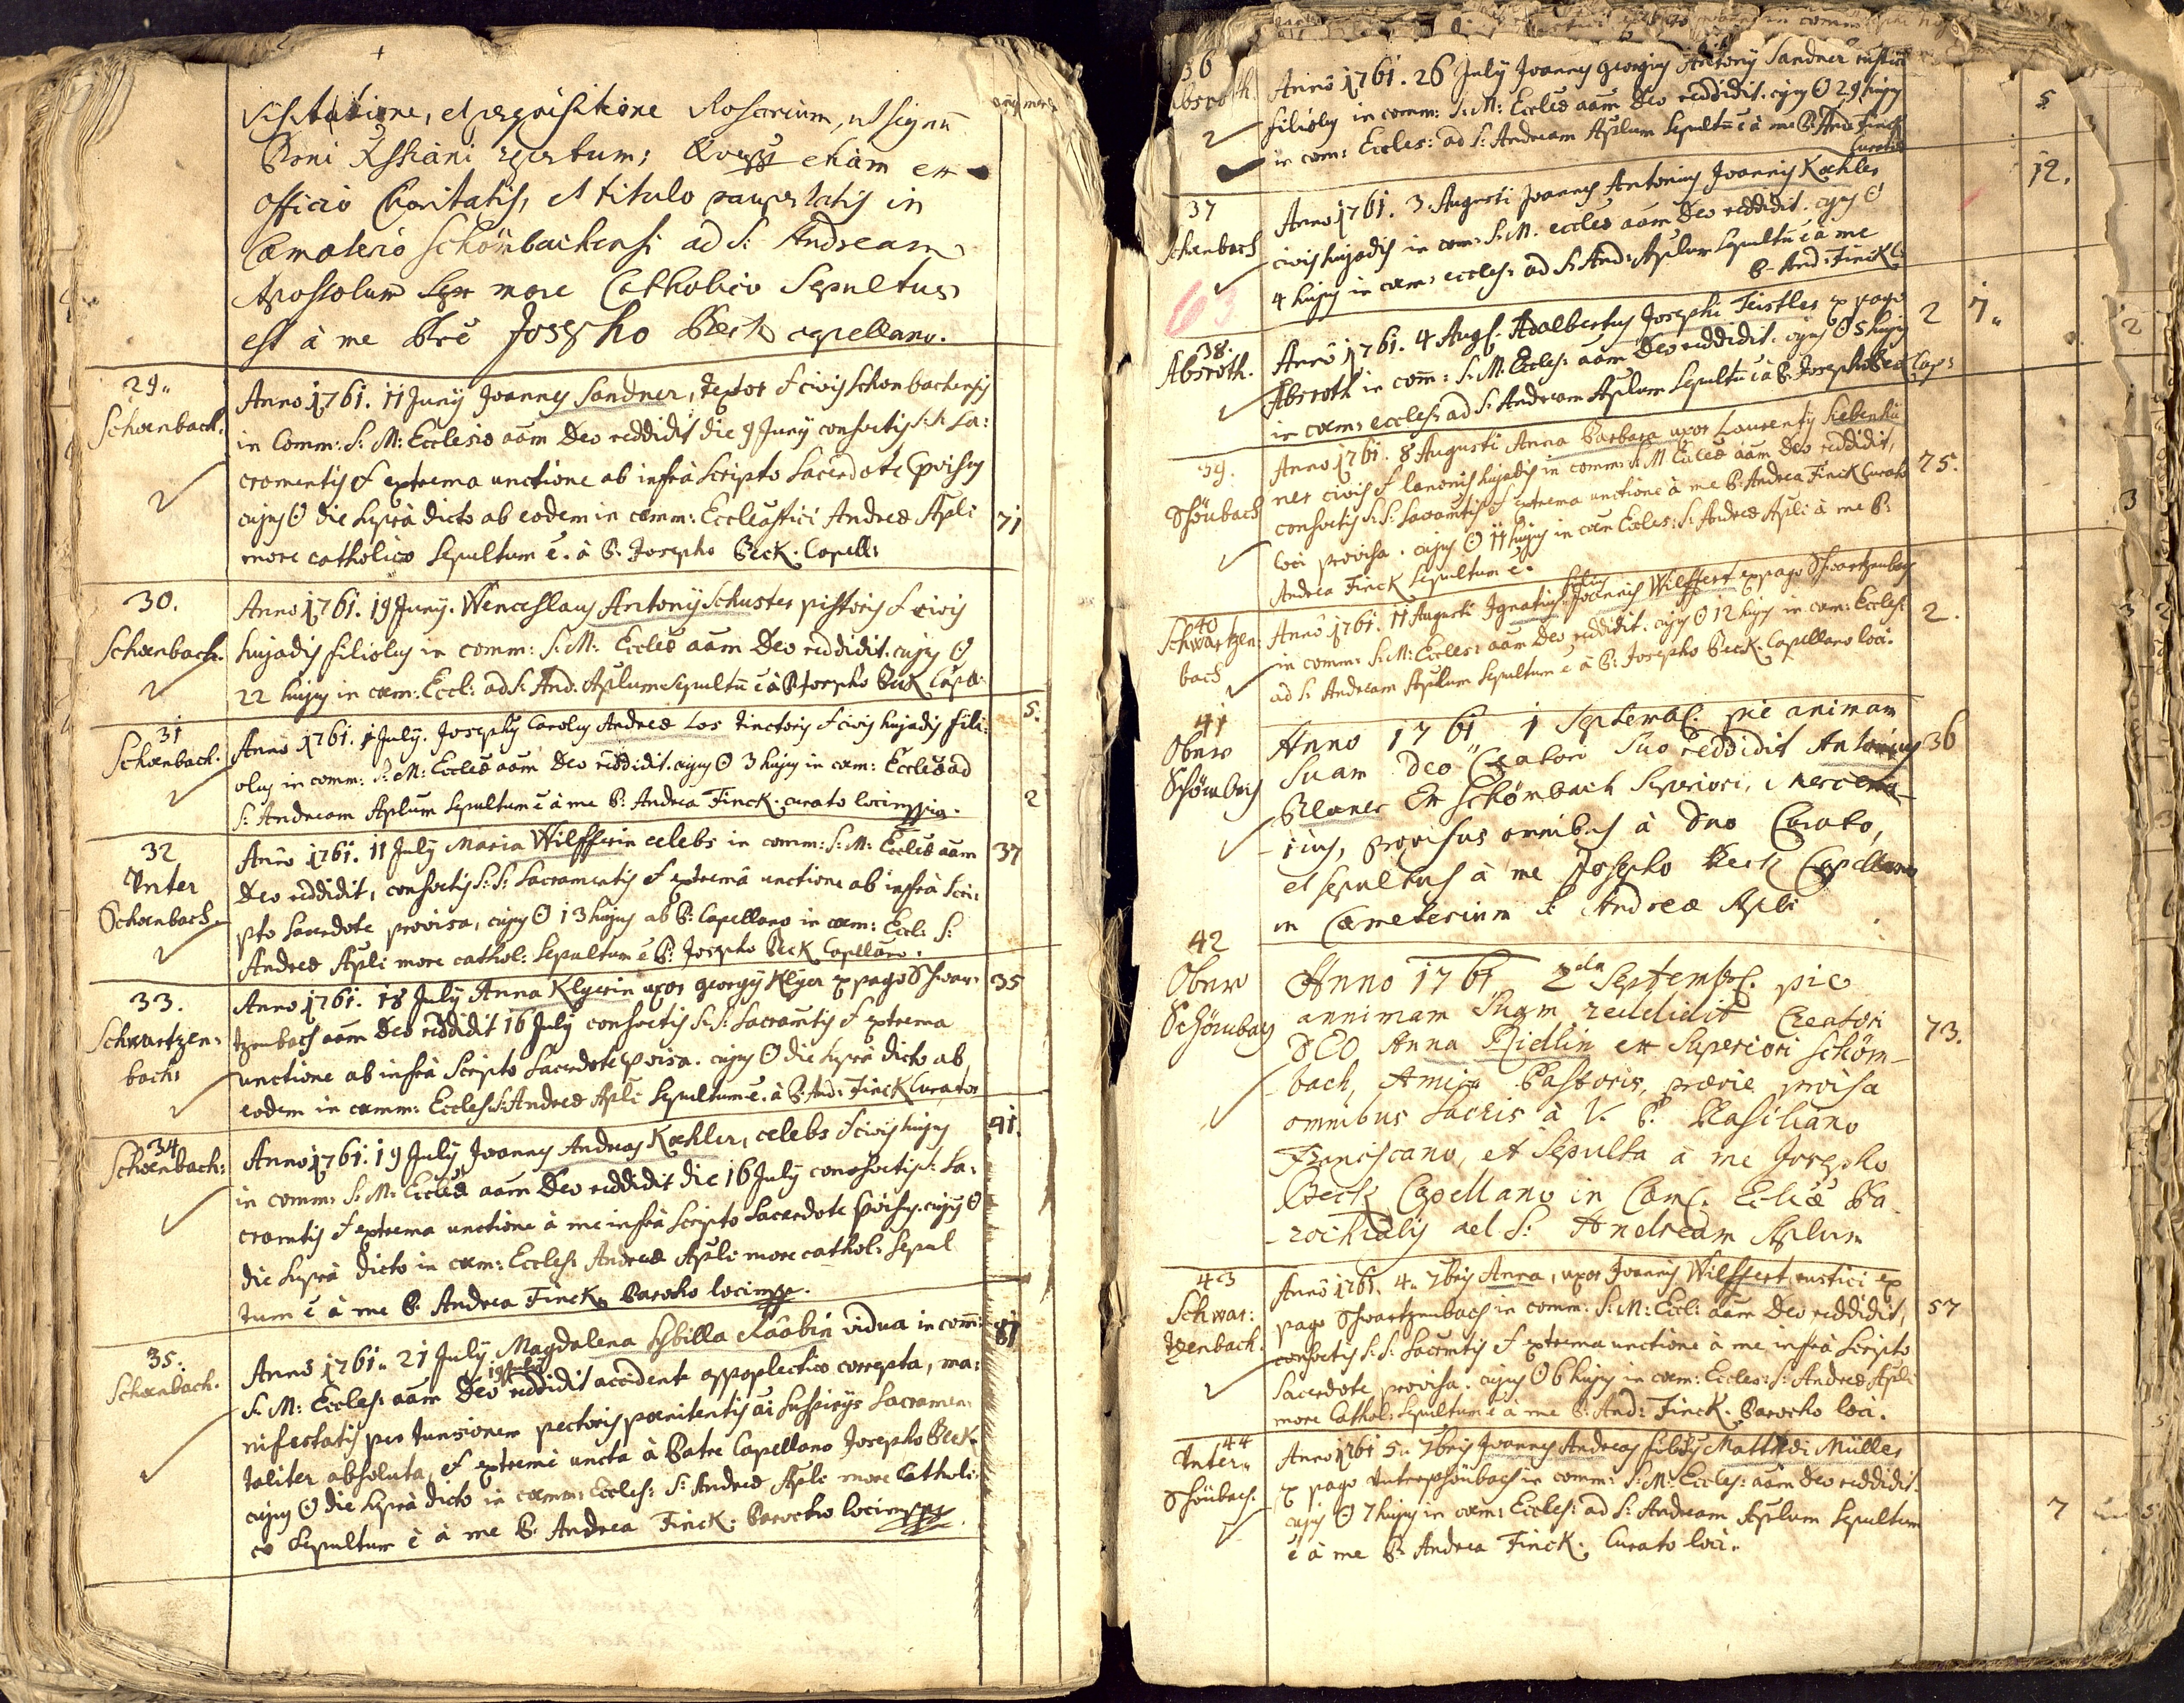 Rosarium, ut signum
Boni Xstiani repertum; etiam ex
officio Charitatis, et titulo paupertatis in
Cæmeterio Schömbachensi ad S: Andream
Apostolum more Catholico Sepultus
est à me Josepho Beck capellano.
29.
Schœnbach.
Anno 1761. 11 Junÿ Joannes Sandner, textor & civis Schonbachensis
in Comm: S: M: Ecclesiæ aam Deo reddidit die 9 Junÿ confortatus S:S: Sa:
cramentis & extrema unctione ab infrà Scripto Sacerdote Provisus
cujus Θ die Suprà dicto ab eodem in cœm: Andreæ Apli
more catholico Sepultum ē. à P: Josepho Beck. Capell:
71
30.
Schœnbach.
Anno 1761. 19 Junÿ. Wenceslaus Antonÿ Schuster pistoris & civis
hujadis filiolus in comm: S: M: Eccleæ aam Deo reddidit. cujus Θ
22 hujus in cœm: Eccl: ad S: And: Aplum Sepultū ē à P Josepho Beck Cape:
5.
31
Schœnbach.
Anno 1761. 1 July. Josephus Carolus Andreæ Los tinctoris & civis hujadis fili:
olus in comm: S: M: Eccleæ aam Deo reddidit. cujus Θ 3 hujus in cœm: Eccleæ ad
S: Andream Aplum Sepultum ē à me P: Andrea Finck. curato loci mppia.
2
32
Unter
Schœnbach
Anno 1761. 11 July Maria Wilfferin celebs in comm: S: M: Eccleæ aam
Deo reddidit, confortatis S: S: Sacramentis & extremâ unctione ab infrà Scri:
pto Sacerdote provisa, cujus Θ 13 hujus ab P: Capellano in cœm: Eccl: S:
Andreæ Apli more cathol: Sepultum ē P: Josepho Beck Capellano.
37
33.
Schwartzen:
bach:
Anno 1761. 18 July Anna Klyerin uxor georgÿ Klyer ex pago Schwar:
tzenbach aam Deo reddidit 16 July confortatis S: S: Sacramtis & extrema
unctione ab infrà Scripto Sacerdote Pvisa. cujus Θ die Suprà dicto ab
eodem in cœmm: Eccles: S: Andreæ Apli Sepultum ē. à P: And: Finck Curatos
35
34
Schœnbach:
Anno 1761. 19 July Joannes Andreas Kœhler, celebs & civis hujus
in comm: S: M: Eccleæ aam Deo reddidit die 16 July confortatis S: Sa:
cramtis & extrema unctione à me infrà Scripto Sacerdote Pvisus. cujus Θ
die Suprà dicto in cœm: Eccles: Andreæ Apli more cathol: Sepul
tum ē à me P. Andrea Finck, Parocho loci mpp.
41.
35.
Schœnbach.
Anno 1761. 21 July Magdalena Sybilla Raabin vidua in com:
19 July
S: M: Eccles: aam Deo reddidit accidente appoplectico correpta, ma:
nifestatis per tunsionem pectoris pœnitentis ac Suspirÿs Sacramen:
taliter absoluta, & extremè uncta à Patre Capellano Josepho Beck.
cujus Θ die Suprà dicto in cœmm: Eccles: S: Andreæ Apli more Catholi
co Sepultum ē à me P. Andrea Finck. Parocho loci mppr
81
36
Absroth.
Anno 1761. 26 July Joannes georgius Antony Sandner rustici
filiolus in comm: S: M: Eccleæ aam Deo reddidit. cujus Θ 29 hujus
in cœm: Eccles: ad S: Andream Aplum Sepultū ē à me P: And: Finck
Curato
5
37
Schœnbach
Anno 1761. 3. Augusti Joannes Antonius Joannis Kœhler
civis hujadis in com: S: M. eccleæ aam Deo reddidit. cujus Θ
4 hujus in cœm: eccles: ad S: And: Aplum Sepultū ē à me
P. And: Finck:
12.
63
38.
Absroth.
Anno 1761. 4 Aug: Adalbertus Josephi Teistler ex pago
Absroth in com: S: M: Eccles: aam Deo reddidit. cujus Θ 5 hujus
in cœm: eccles: ad S: Andream Aplum Sepultū ē à P. Josepho Beck Cap:
2 7.
39.
Schönbach
Anno 1761. 8 Augusti Anna Barbara uxor Laurenty Siebenhü
ner civis & lanonis hujadis in comm: S: M Eccleæ aam Deo reddidit,
confortatis S: S: Sacramtis & extrema unctione à me P: Andrea Finck Curato
loci provisa. cujus Θ 11 hujus in cœm Eccles: S: Andreæ Apli à me P:
Andrea Finck Sepultum ē.
75.
40
Schwartzen:
bach
filius
Anno 1761. 11 Augusti Ignatius Joannis Wilffert ex pago Schwartzenbach
in comm: S: M: Eccles: aam Deo reddidit. cujus Θ 12 hujus in cœm: Eccles:
ad S: Andream Aplum Sepultum ē à P: Josepho Beck. Capellano loci.
2.
41
Ober
Schömbach
Anno 1761 1 Septemb: pie animam
Suam Deo Creatori Suo reddidit Antonius
Planer Ex Schönbach Superiori, Mercena-
rius, provisus omnibus à Dno Curato,
et sepultus à me Josepho Beck Capellano
in Cæmeterium S: Andreæ Apli
36
42
Ober
Schömbach
Anno 1761 2da Septemb: pie
annimam Suam reddidit Creatori
DEO Anna Ridlin ex Superiori Schöm-
bach, Amita Pastoris, prævie provisa
omnibus Sacris à V. P. Masiliano
Franciscano, et Sepulta à me Josepho
Beck Capellano in Cæm: Ecliæ Pa-
rochialis ad S: Andream Aplum
73.
43
Schwar:
tzenbach.
Anno 1761. 4. 7bris Anna, uxor Joannis Wilffert, rustici ex
pago Schwartzenbach in comm: S: M: Eccl: aam Deo reddidit,
confortatis S: S: Sacramtis & extrema unctione à me infrà Scripto
Sacerdote provisa. cujus Θ 6 hujus in cœm: Eccles: S: Andreæ Apli
more Cathol: Sepultum ē à me P. And: Finck. Parocho loci.
57
44
Unter
Schönbach.
Anno 1761 5. 7bris Joannes Andreas filiolus Müller
ex pago Unterschönbach in comm: S: M: Eccles: aam Deo reddidit.
cujus Θ 7 hujus in cœm: Eccles: ad S: Andream Aplum Sepultum
ē à me P. Andrea Finck. Curato loci.
7